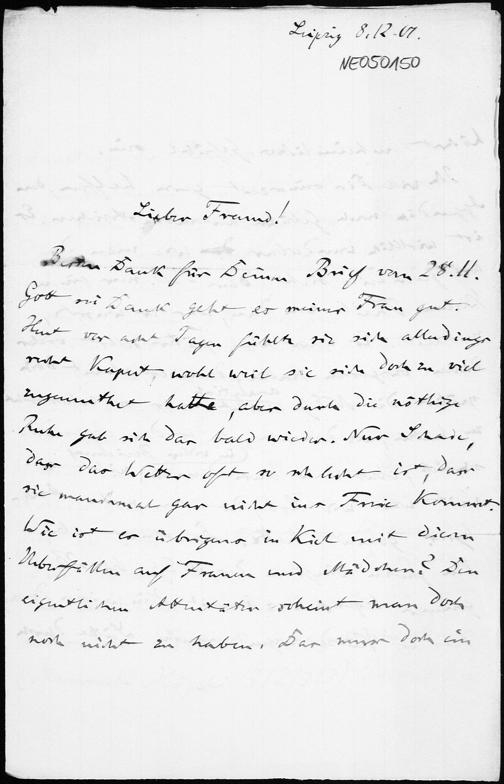 Leipzig 8.12.01.
NE050150
Lieber Freund!
Besten Dank für Deinen Brief vom 28.11.
Gott sei Dank geht es meiner Frau gut.
Heut vor acht Tagen fühlte sie sich allerdings
recht kaput, wohl weil sie sich doch zu viel
zugemuthet hatte, aber durch die nöthige
Ruhe gab sich das bald wieder. Nur Schade,
dass das Wetter oft so schlecht ist, dass
sie manchmal gar nicht ins Freie kommt.
Wie ist es übrigens in Kiel mit diesen
Ueberfällen auf Frauen und Mädchen? Den
eigentlichen Attentäter scheint man doch
noch nicht zu haben. Das muss doch ein